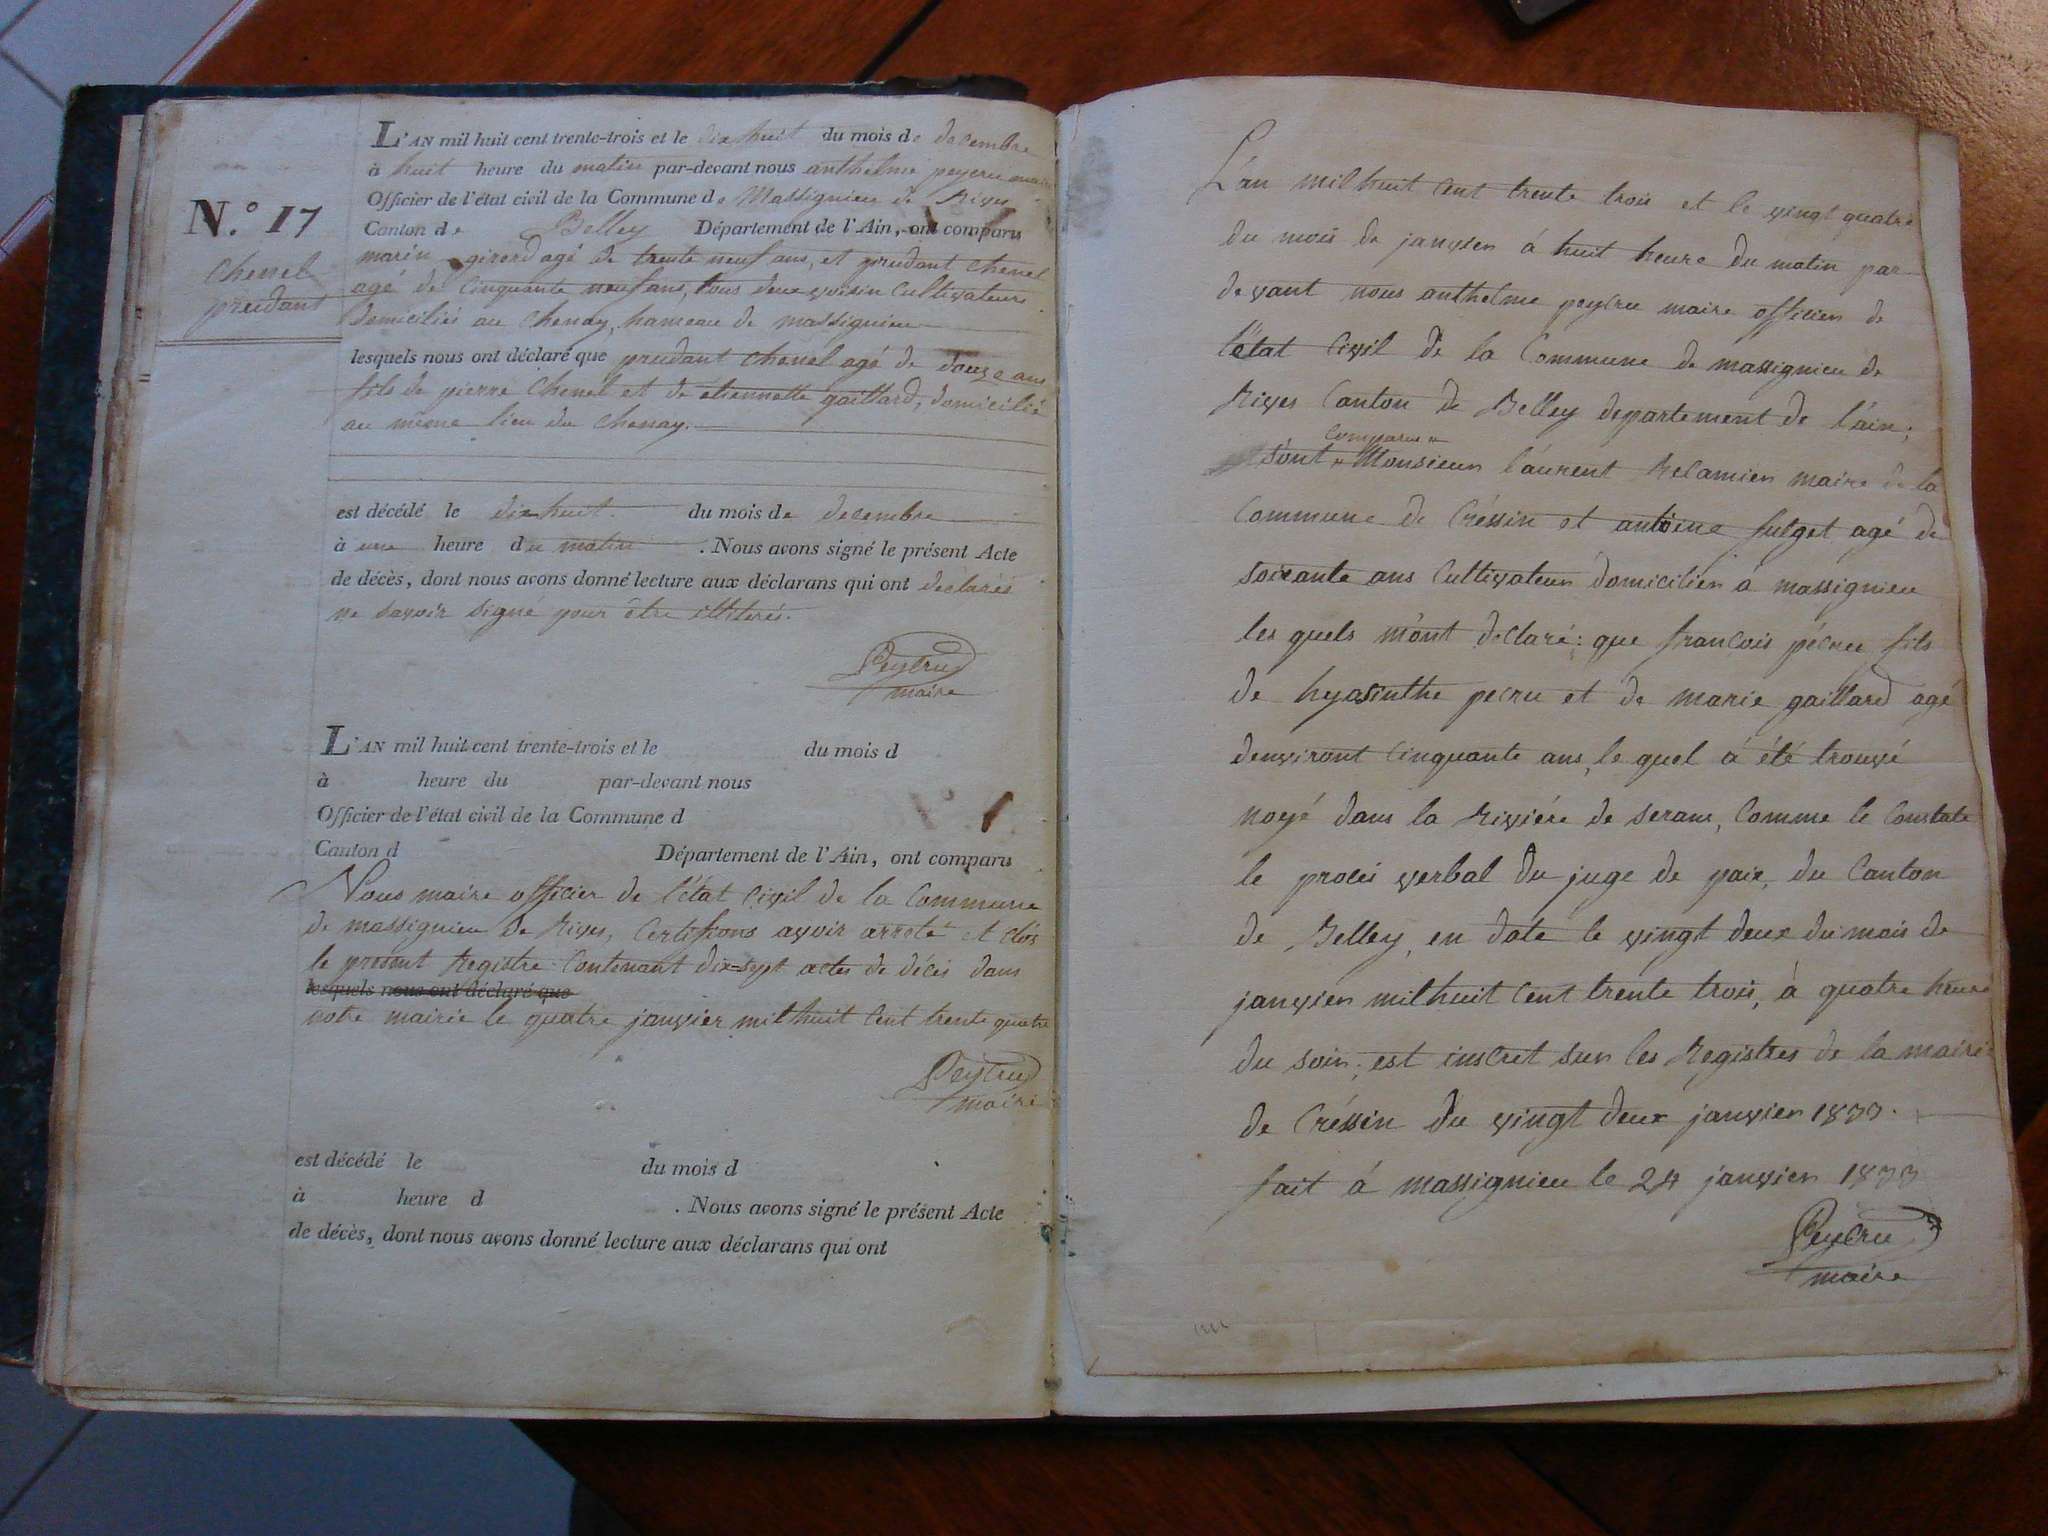 N.º 17
chenel
prudant
L'AN mil huit cent trente-trois et le dix huit du mois de decembre
à huit heure du matin par-devant nous anthelme peycru maire
Officier de l'état civil de la Commune de Massignieu de Rives
Canton de Belley Département de l'Ain, ont comparu
marin girerd agé de trente neuf ans, et prudant chenel
agé de cinquante neuf ans, tous deux voisin cultivateurs
domiciliés au chenay, hameau de massignieu
lesquels nous ont déclaré que prudant chenel agé de douze ans
fils de pierre chenel et de etiennette gaillard, domicilié
au même lieu du chenay.
est décédé le dix huit du mois de decembre
à une heure du matin . Nous avons signé le présent Acte
de décès, dont nous avons donné lecture aux déclarans qui ont declarés
ne savoir signé pour être illiterés.
Peycru
maire
L'AN mil huit cent trente-trois et le du mois d
à heure du par-devant nous
Officier de l'état civil de la Commune d
Canton d Département de l'Ain, ont comparu
Nous maire officier de l'état civil de la commune
de massignieu de Rives, certifions avoir arreté et clos
le present Registre contenant dix-sept actes de décés dans
lesquels nous ont déclaré que
notre mairie le quatre janvier mil huit cent trente quatre
Peycru
maire
est décédé le du mois d
à heure d . Nous avons signé le présent Acte
de décès, dont nous avons donné lecture aux déclarans qui ont
L'an mil huit cent trente trois et le vingt quatre
du mois de janvier à huit heure du matin par
devant nous anthelme peycru maire officier de
l'état civil de la commune de massignieu de
Rives Canton de Belley departement de l'ain;
comparu
sont Monsieur laurent Relamier maire de la
commune de Créssin et antoine fulget agé de
soixante ans cultivateur domicilier à massignieu
les quels m'ont declaré: que francois pécru fils
de hyasinthe pecru et de marie gaillard agé
denviront cinquante ans, le quel à été trouvé
noyé dans la Riviére de serans, comme le constate
le procés verbal du juge de paix, du Canton
de Belley, en date le vingt deux du mois de
janvier mil huit cent trente trois, à quatre heure
du soir; est inscrit sur les Registres de la mairie
de Créssin du vingt deux janvier 1833.
fait à massignieu le 24 janvier 1833
Peycru
maire